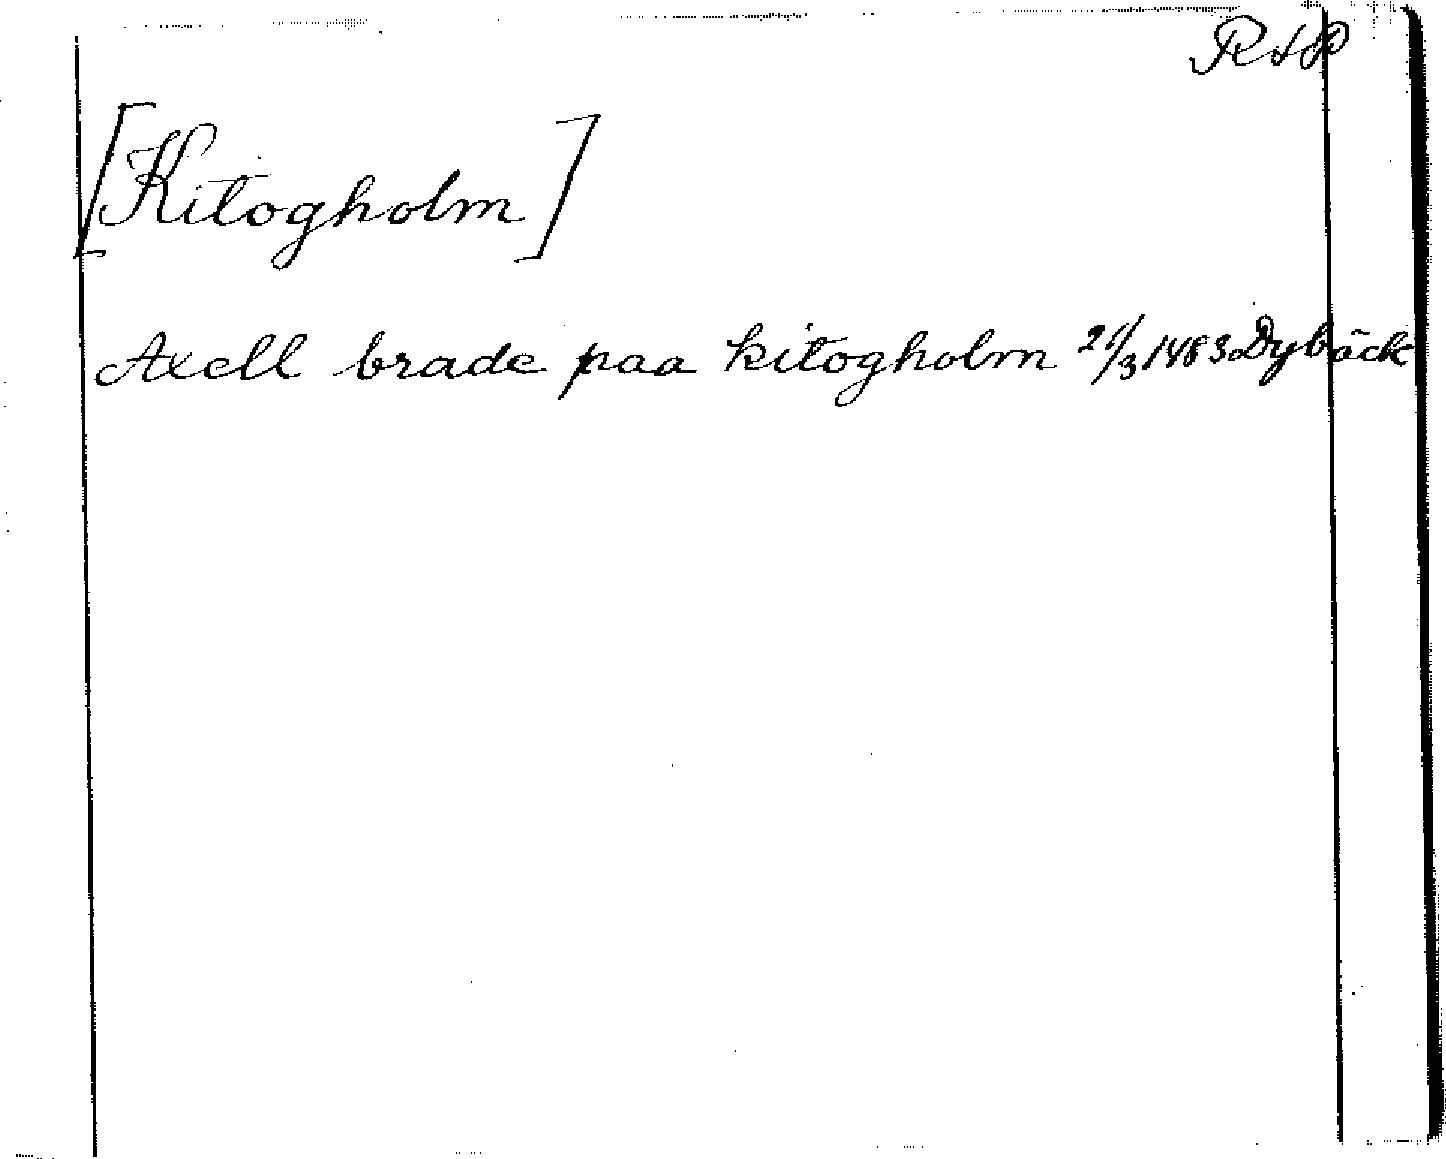 [Kitogholm]
Axell brade paa kitogholm 21/3 1483 Dybäck